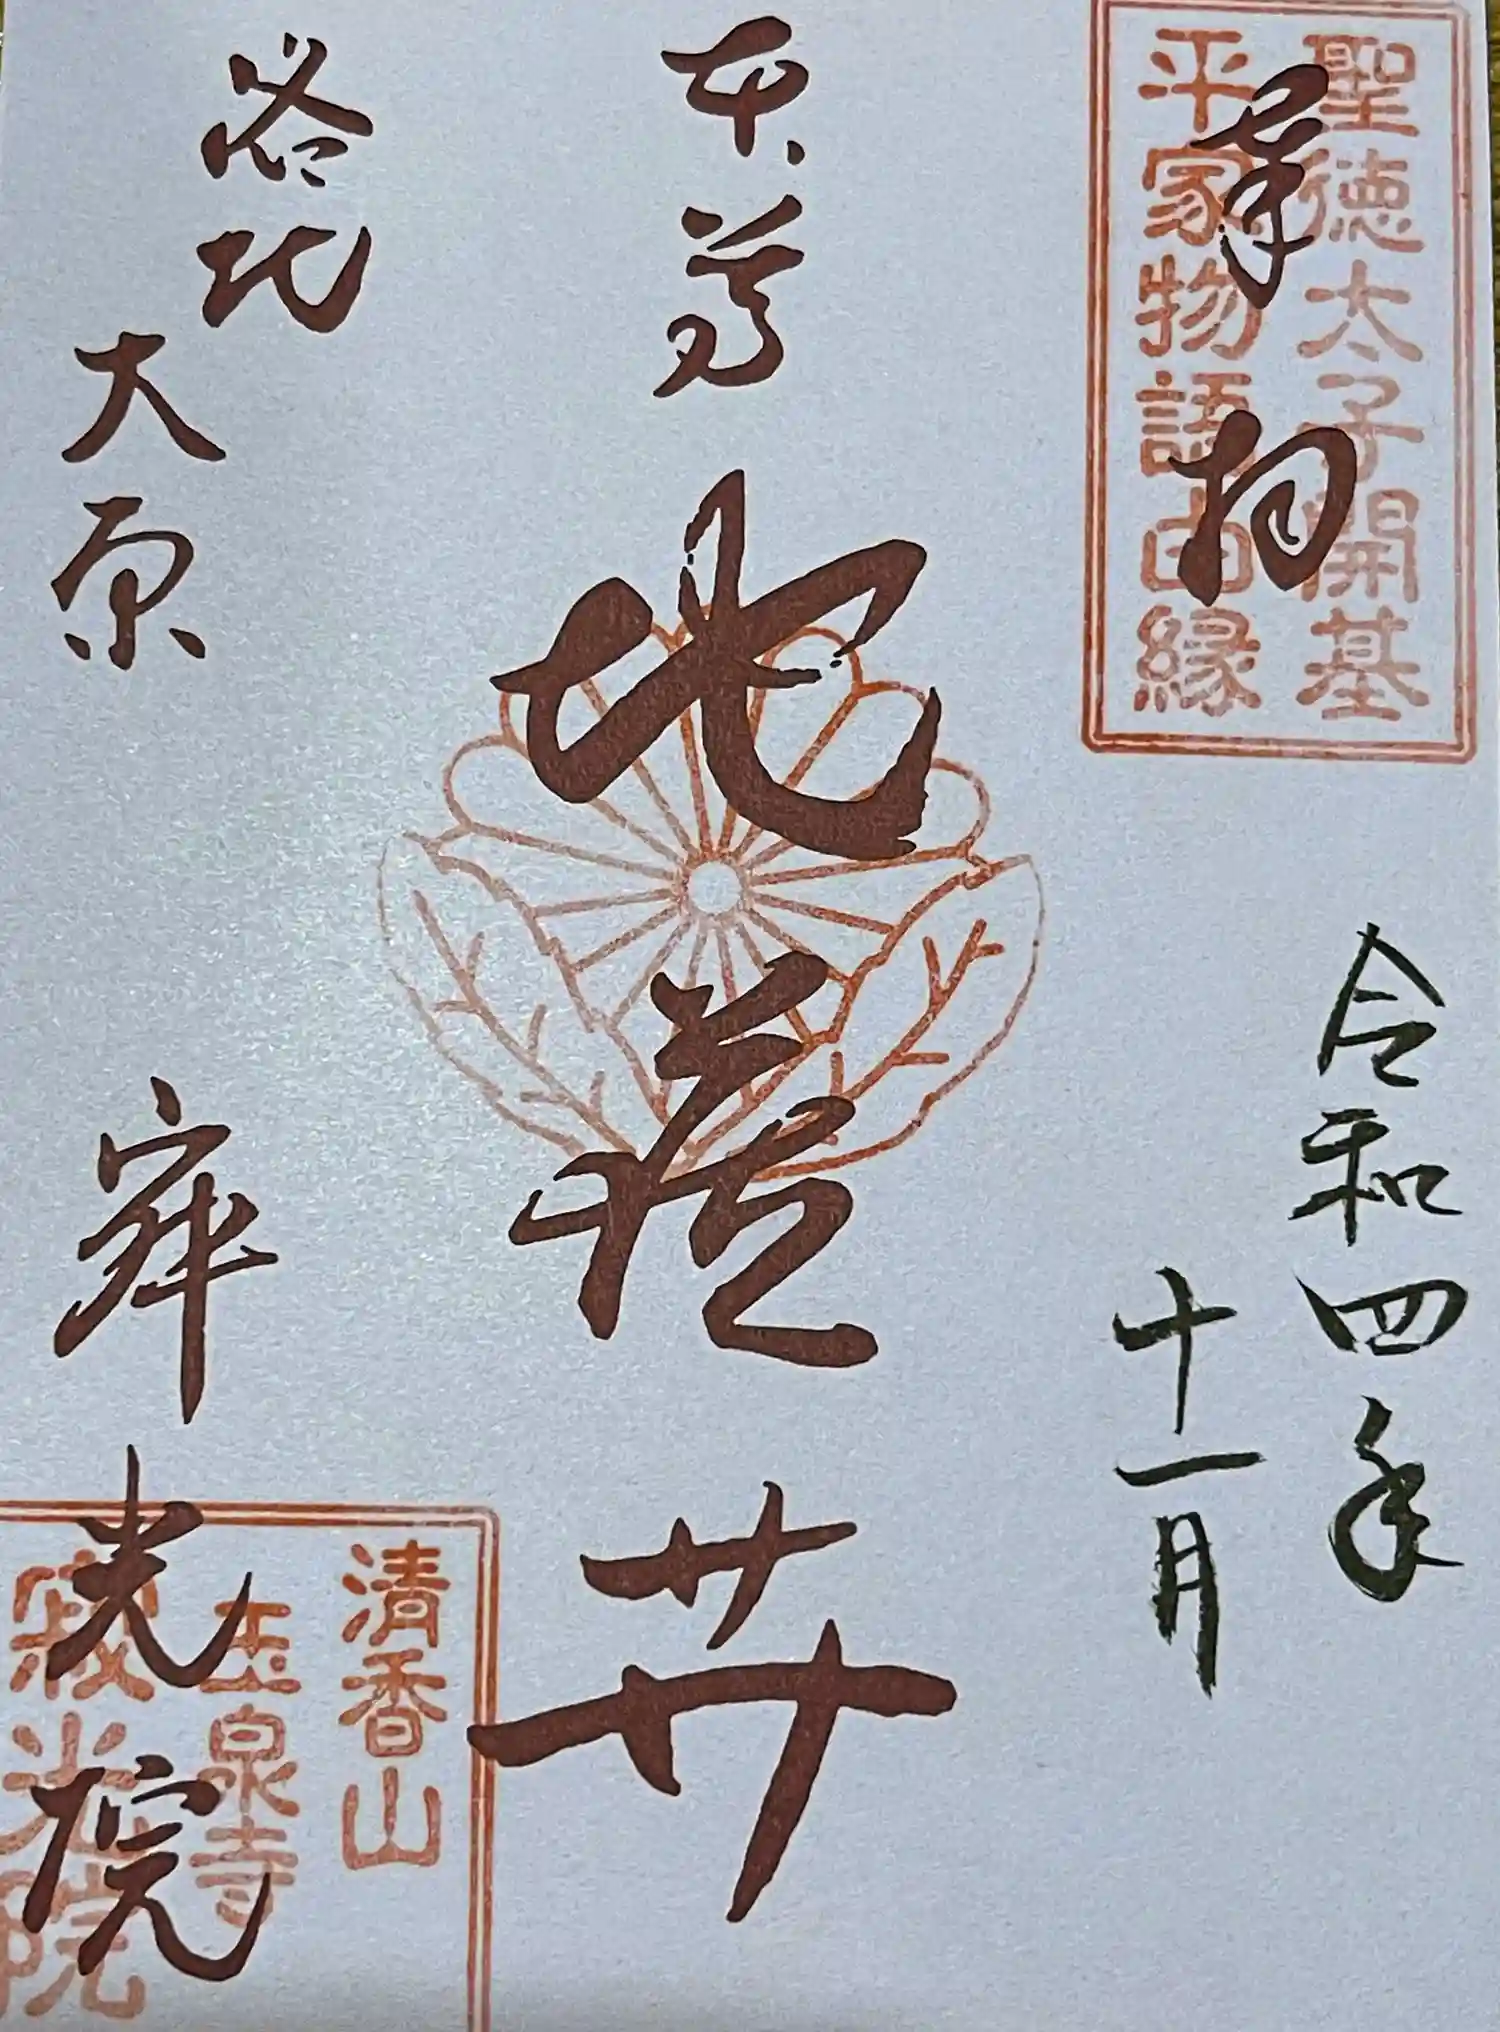 聖徳太子開基
平家物語由縁
奉拝
令和四年
十一月
本尊
地蔵𦬇
洛北
大原
寂光院
清香山
玉泉寺
寂光院